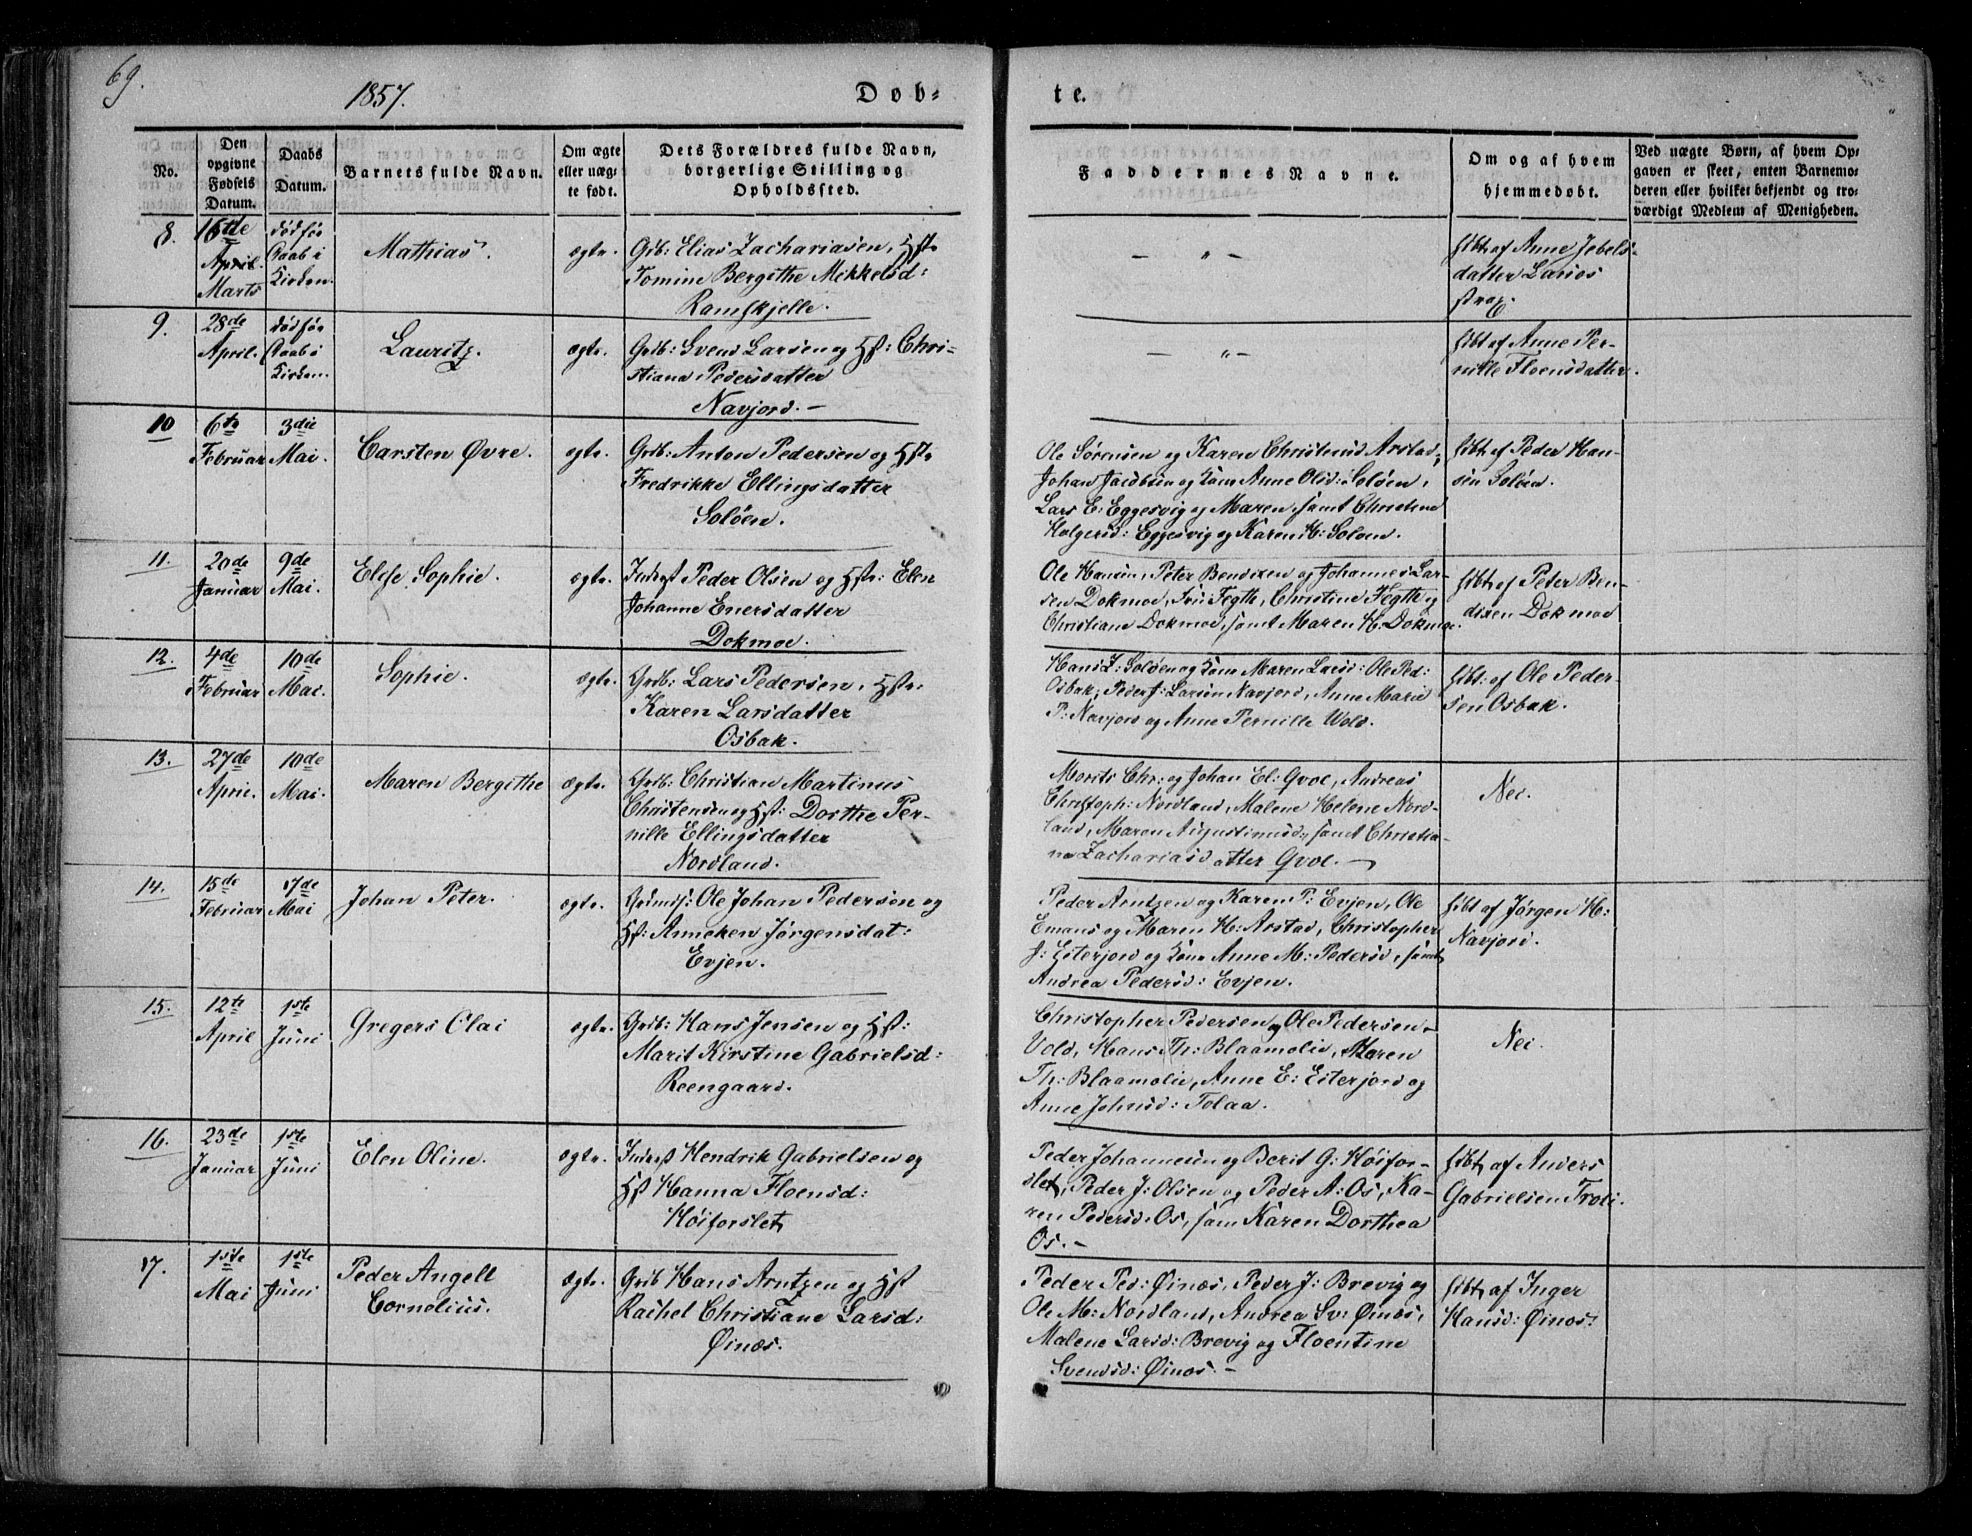 69.
1857.
Døb-
te.
No.
Den opgivne Fødsels Datum.
Daabs Datum.
Barnets fulde Navn.
Om ægte eller uægte født.
Dets Forældres fulde Navn, borgerlige Stilling og Opholdssted.
Faddernes Navne.
Om og af hvem hjemmedøbt.
Ved uægte Børn, af hvem Opgaven er skeet, enten Barnemoderen eller hvilket bekjendt og troværdigt Medlem af Menigheden.
8.
16de
April.
Marts
død før
Daab i
Kirken.
Mathias.
ægte.
Grdb: Elias Zachariasen, Hst:
Tomine Bergithe Mikkelsd:
Ramskjelle.
— " —
hibt, af Anne Jebelsdatter
strax.
9.
28de
April.
død før
Daab i
Kirken.
Lauritz.
ægte.
Grdb: Svend Larsen og Hst: Chri-
stiana Pedersdatter
Navjord. —
— " —
hibt af Anne Per-
nille Floensdatter.
10
6te
Februar
3die
Mai.
Carsten Øvre.
ægte.
Grdb: Anton Pedersen og Hst:
Fredrikke Ellingsdatter
Soløen.
Ole Sørensen og Karen Christensd Arstad,
Johan Jacobsen og Kone Anne Olsd: Soløen,
Lars E: Eggesvig og Maren, samt Christine
Holgersd: Eggesvig og Karen H: Soløen.
hibt af Peder Han-
sen Soløen.
11.
20de
Januar
9de
Mai.
Elise Sophie.
ægte.
Inderst Peder Olsen og Hst: Elen
Johanne Enersdatter
Dokmoe.
Ole Hansen, Peter Bendixen og Johannes Lar-
sen Dokmoe, Fegth, Christine Fegth og
Christiane Dokmoe, samt Maren H. Dokmoe.
hibt af Peter Ben-
dixen Dokmoe
12.
4de
Februar
10de
Mai.
Sophie.
ægte.
Grdb: Lars Pedersen, Hst:
Karen Larsdatter
Osbak.
Hans J: Soløen og Kone Maren Larsd: Ole Ped:
Osbak, Peder J: Larsen Navjord, Anne Marie
P: Navjord og Anne Pernille Vold.
hibt: af Ole Peder-
sen Osbak.
13.
27de
April.
10de
Mai.
Maren Bergithe
ægte.
Grdb: Christian Martinus
Christensen og Hst: Dorthe Per-
nille Ellingsdatter
Nordland.
Morits Chr: og Johan El: Qvoe, Andreas
Christoph: Nordland, Malene Helene Nord-
land, Maren Augustinusd, samt Christia-
ne Zachariasdatter Qvoe. —
Nei.
14.
15de
Februar
17de
Mai
Johan Peter.
ægte.
Ole Johan Pedersen og
Hst: Anneken Jørgensdat:
Evjen.
Peder Arntzen og Karen P: Evjen, Ole
Emans og Maren H: Arstad, Christopher
J: Eiterjord og Kone Anne M: Pedersd, samt
Andrea Pedersd: Evjen.
hibt af Jørgen H:
Navjord.
15.
12te
April
1ste
Juni
Gregers Olai
ægte.
Grdb: Hans Jensen og Hst:
Marit Kirstine Gabrielsd:
Reengaard.
Christopher Pedersen, Ole Pedersen
Vold, Hans Th: Blaamolie, Maren
Th: Blaamolie, Anne E: Eiterjord og
Anne Johnsd: Tolaa.
Nei.
16.
23de
Januar
1ste
Juni
Elen Oline.
ægte.
Inderst Hendrik Gabrielsen og
Hst Hanna Floensd:
Høiforslet
Peder Johannesen og Berit G: Høifor-
slet, Peder J: Olsen og Peder A: Os, Ka-
ren Pedersd: Os, samt Karen Dorthea
Os. —
hibt af Anders
Gabrielsen Troli.
17.
1ste
Mai
1ste
Juni
Peder Angell
Cornelius.
ægte.
Grdb Hans Arntzen og Hst
Rachel Christiane Larsd:
Øinæs.
Peder Ped: Øinæs, Peder J: Brevig og
Ole M: Nordland, Andrea Sv: Øinæs,
Malene Larsd: Brevig og Floentine
Svendsd: Øinæs. —
hibt af Inger
Hansd: Øinæs.